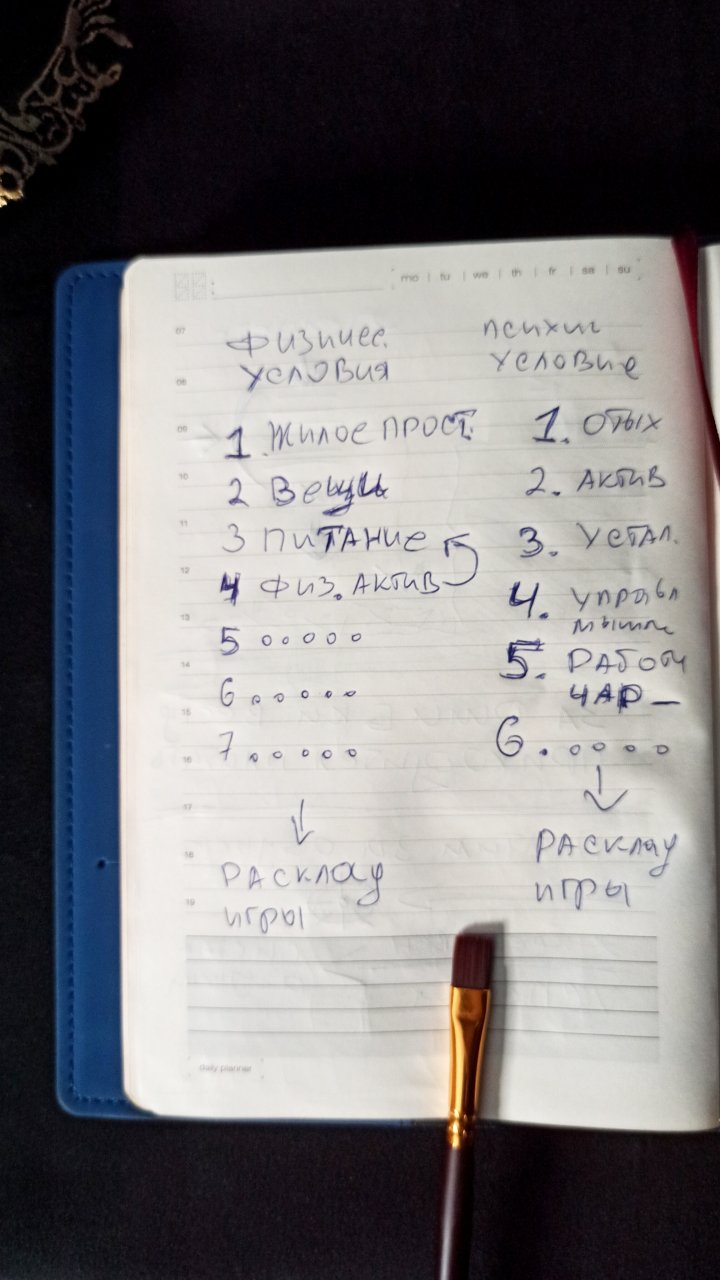 mo | tu | we | th | fr | sa | su
07
Физичес.
условия
08
09
1. Жилое прост.
10
2 Вещи
11
3 Питание
12
4 Физ. актив
13
5 ooooo
14
6 .....
15
7 .ooooo
16
17
18
Расклад
игры
19
психич
условие
1. отых
2. актив
3. устал.
4. управл
мышл
5. работ
чар_
6. oooo
Расклад
игры
daily planner